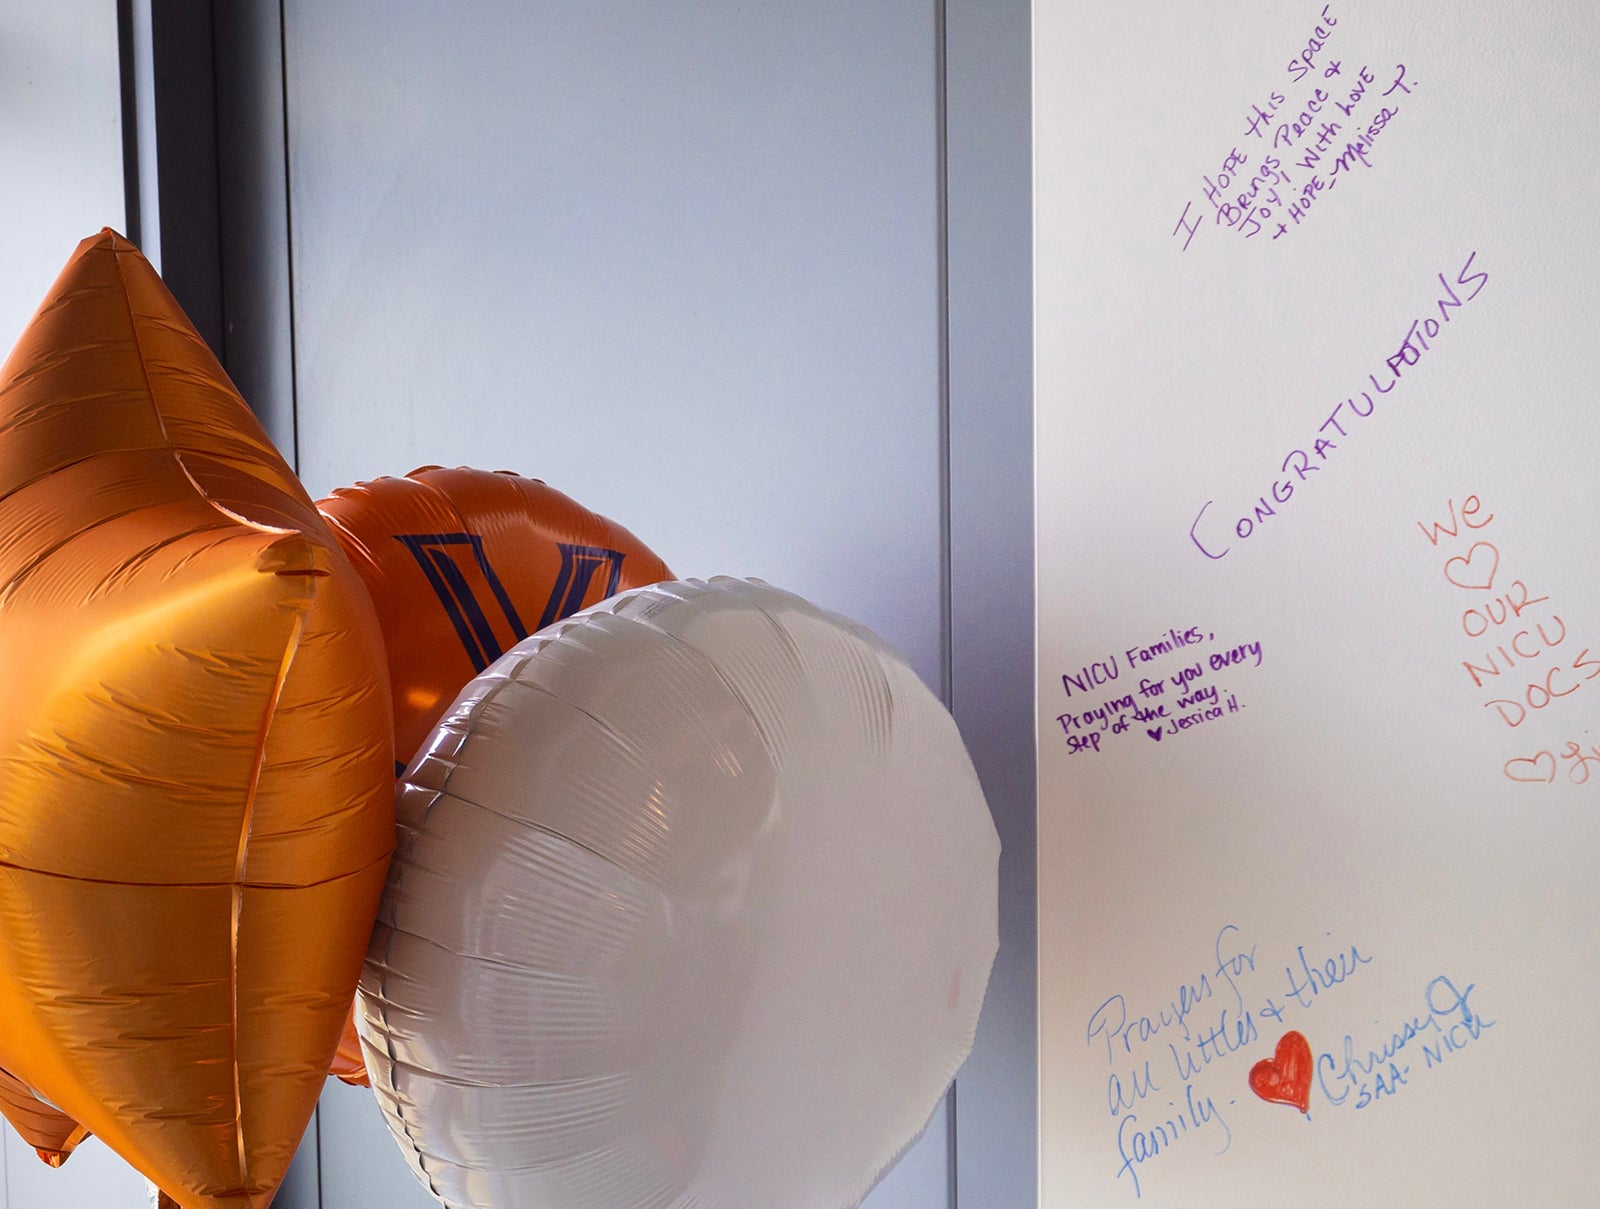 I HOPE this Space
Brings Peace &
Joy! With Love
+ HOPE - Melissa T.
CONGRATULATIONS
We
♡
OUR
NICU
DOCS
♡
NICU Families,
Praying for you every
step of the way.
♥ Jessica H.
V
Prayers for
all littles & their
family. ♥ Chrissy
SAA- NICU